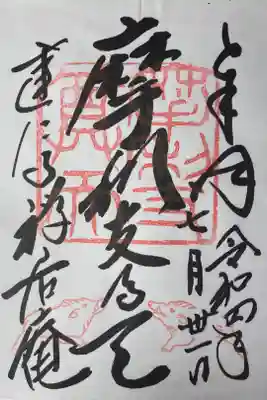 奉拝
令和四年
七月卅一日
摩利支尊天
建仁寺禅居庵